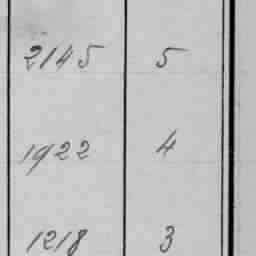 2145 5
1922 4
1218 3